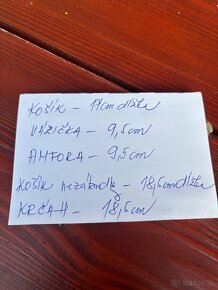 KOŠÍK - 19cm dĺžka
VÁZIČKA - 9,5cm
AMFORA - 9,5cm
KOŠÍK nezábudky - 18,5cm dĺžka
KRČAH - 18,5cm